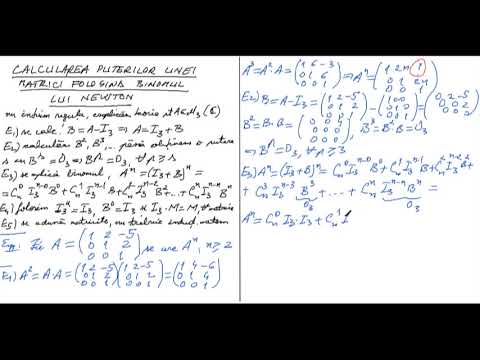 CALCULAREA PUTERILOR UNEI
MATRICI FOLOSIND BINOMUL
LUI NEWTON
nu uităm regula, explicăm teoria pt A∈M₃(ℂ)
E₁) se calc. B=A-I₃ ⇒ A=I₃+B
E₂) calculăm B², B³, ... până obținem o putere
s cu Bˢ=O₃ ⇒ Bᴾ=O₃, ∀p≥s
E₃) se aplică binomul, Aⁿ=(I₃+B)ⁿ=
=Cₙ⁰I₃ⁿ⁻⁰B⁰+Cₙ¹I₃ⁿ⁻¹B+Cₙ²I₃ⁿ⁻²B²+...+CₙⁿI₃ⁿ⁻ⁿBⁿ
E₄) folosim I₃ᵏ=I₃, B⁰=I₃ și I₃·M=M, ∀ matrice
E₅) se adună matricile, nu trebuie
Exp: Fie A=(1 2 -5
0 1 2
0 0 1) se cere Aⁿ, n≥2
E₁) A²=A·A=(1 2 -5
0 1 2
0 0 1)(1 2 -5
0 1 2
0 0 1)=(1 4 -6
0 1 4
0 0 1)
A³=A²·A=(1 6 -3
0 1 6
0 0 1) ⇒Aⁿ=(1 2n 1
0 1 2n
0 0 1)
E₂) B=A-I₃=(1 2 -5
0 1 2
0 0 1)-(1 0 0
0 1 0
0 0 1)=(0 2 -5
0 0 2
0 0 0)
B²=B·B=(0 0 4
0 0 0
0 0 0), B³=B²·B=O₃
⇒Bᴾ=O₃, ∀p≥3
E₃) Aⁿ=(I₃+B)ⁿ=Cₙ⁰I₃ⁿ⁻⁰B⁰+Cₙ¹I₃ⁿ⁻¹B+Cₙ²I₃ⁿ⁻²B²+
+Cₙ³I₃ⁿ⁻³B³+...+CₙⁿI₃ⁿ⁻ⁿBⁿ=
O₃ O₃
Aⁿ=Cₙ⁰I₃·I₃+Cₙ¹I